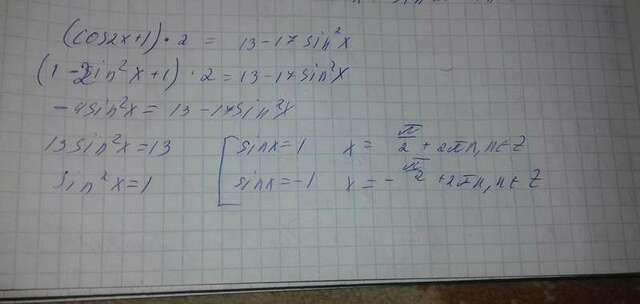 (cos2x+1)·2 = 13-17sin²x
(1-2sin²x+1)·2=13-17sin²x
-4sin²x= 13-17sin²x
13sin²x=13 [sinx=1 x= π/2+2πn, n∈Z
sin²x=1 [sinx=-1 x=-π/2+2πn, n∈Z